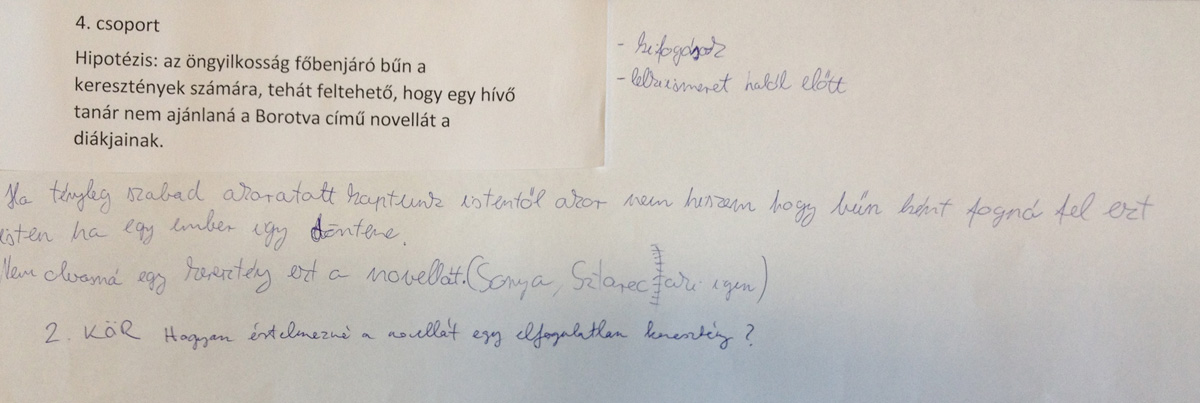 4. csoport
Hipotézis: az öngyilkosság főbenjáró bűn a
keresztények számára, tehát feltehető, hogy egy hívő
tanár nem ajánlaná a Borotva című novellát a
diákjainak.
- kifogások
- lelkiismeret halál előtt
Ha tényleg szabad akaratatt kaptunk istentől akor nem hiszem hogy bűn ként fogná fel ezt
isten ha egy ember így döntene.
Nem olvasná egy keresztény ezt a novellát. (Sonya, Sztarec igen)
2. KÖR Hogyan értelmezné a novellát egy elfogulatlan keresztény?